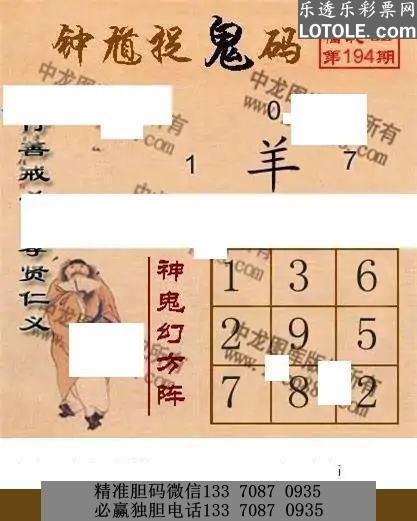 乐透乐彩票网
LOTOLE.COM
钟馗捉鬼码
第194期
0
1
羊
7
善戒
尊贤仁义
神鬼幻方阵
1 3 6
2 9 5
7 8 2
中龙图库版所有
i
精准胆码微信133 7087 0935
必赢独胆电话133 7087 0935